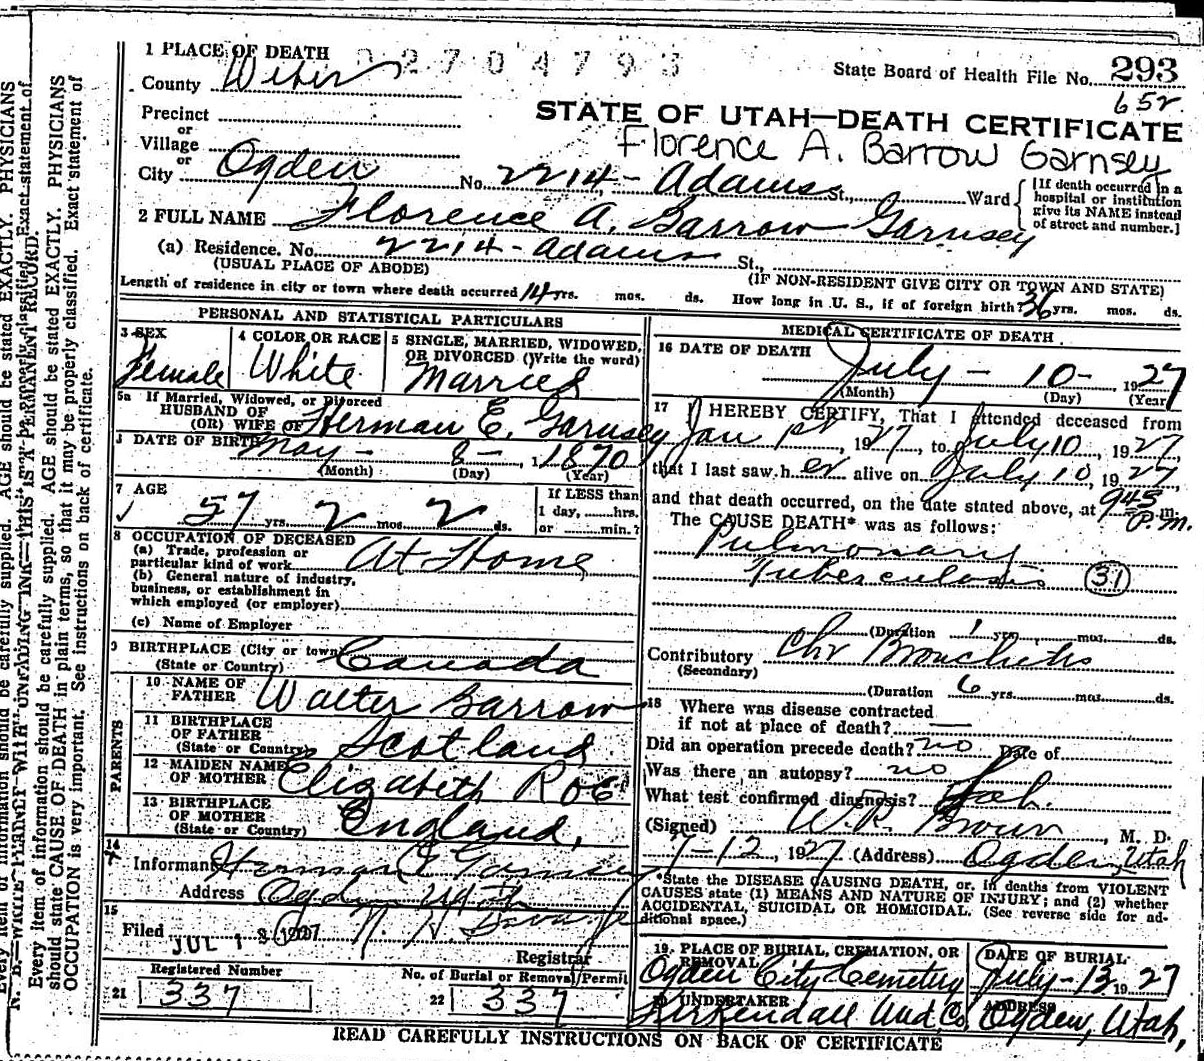 1 PLACE OF DEATH 02704793
State Board of Health File No. 293
County Weber
652
STATE OF UTAH—DEATH CERTIFICATE
Precinct
or
Village
Florence A. Barrow Garnsey
or
City Ogden No. 2214 - Adams St., Ward
[If death occurred in a hospital or institution give its NAME instead of street and number.]
2 FULL NAME Florence A. Barrow Garnsey
(a) Residence. No. 2214 - Adams St.,
(USUAL PLACE OF ABODE) (IF NON-RESIDENT GIVE CITY OR TOWN AND STATE)
Length of residence in city or town where death occurred 14 yrs. mos. ds. How long in U. S., if of foreign birth? 36 yrs. mos. ds.
PERSONAL AND STATISTICAL PARTICULARS
3 SEX
Female
4 COLOR OR RACE
White
5 SINGLE, MARRIED, WIDOWED,
OR DIVORCED (Write the word)
Married
5a If Married, Widowed, or Divorced
HUSBAND OF
(OR) WIFE OF Herman E. Garnsey
DATE OF BIRTH May - 8 - , 1870
(Month) (Day) (Year)
7 AGE
57 yrs. 2 mos. 2 ds.
If LESS than
1 day, hrs.
or min.?
8 OCCUPATION OF DECEASED
(a) Trade, profession or
particular kind of work At Home
(b) General nature of industry,
business, or establishment in
which employed (or employer)
(c) Name of Employer
9 BIRTHPLACE (City or town)
(State or Country) Canada
PARENTS
10 NAME OF
FATHER Walter Barrow
11 BIRTHPLACE
OF FATHER
(State or Country) Scotland
12 MAIDEN NAME
OF MOTHER Elizabeth Roe
13 BIRTHPLACE
OF MOTHER
(State or Country) England,
14
Informant Herman E Garnsey
Address Ogden Utah
15
Filed JUL 13 1927
Registrar
Registered Number
21 337
No. of Burial or Removal Permit
22 337
MEDICAL CERTIFICATE OF DEATH
16 DATE OF DEATH
July - 10 - , 1927
(Month) (Day) (Year)
17 I HEREBY CERTIFY, That I attended deceased from
Jan 1st, 1927, to July 10, 1927,
that I last saw h er alive on July 10, 1927
and that death occurred, on the date stated above, at 945 P.m.
The CAUSE DEATH* was as follows:
Pulmonary
Tuberculosis (31)
(Duration 1 yrs. mos. ds.
Contributory Chr Bronchitis
(Secondary)
(Duration 6 yrs. mos. ds.
18 Where was disease contracted
if not at place of death?
Did an operation precede death? no Date of
Was there an autopsy? no
What test confirmed diagnosis? Lab.
(Signed) W. R. Brown, M. D.
7-12, 1927 (Address) Ogden, Utah
*State the DISEASE CAUSING DEATH, or, in deaths from VIOLENT
CAUSES state (1) MEANS AND NATURE OF INJURY; and (2) whether
ACCIDENTAL, SUICIDAL OR HOMICIDAL. (See reverse side for ad-
ditional space.)
19 PLACE OF BURIAL, CREMATION, OR
REMOVAL
Ogden City Cemetery
DATE OF BURIAL
July - 13, 1927
UNDERTAKER
Kirkendall Und. Co.
ADDRESS
Ogden, Utah,
READ CAREFULLY INSTRUCTIONS ON BACK OF CERTIFICATE
N. B.—WRITE PLAINLY WITH UNFADING INK—THIS IS A PERMANENT RECORD.
Every item of information should be carefully supplied. AGE should be stated EXACTLY. PHYSICIANS
should state CAUSE OF DEATH in plain terms, so that it may be properly classified. Exact statement of
OCCUPATION is very important. See instructions on back of certificate.